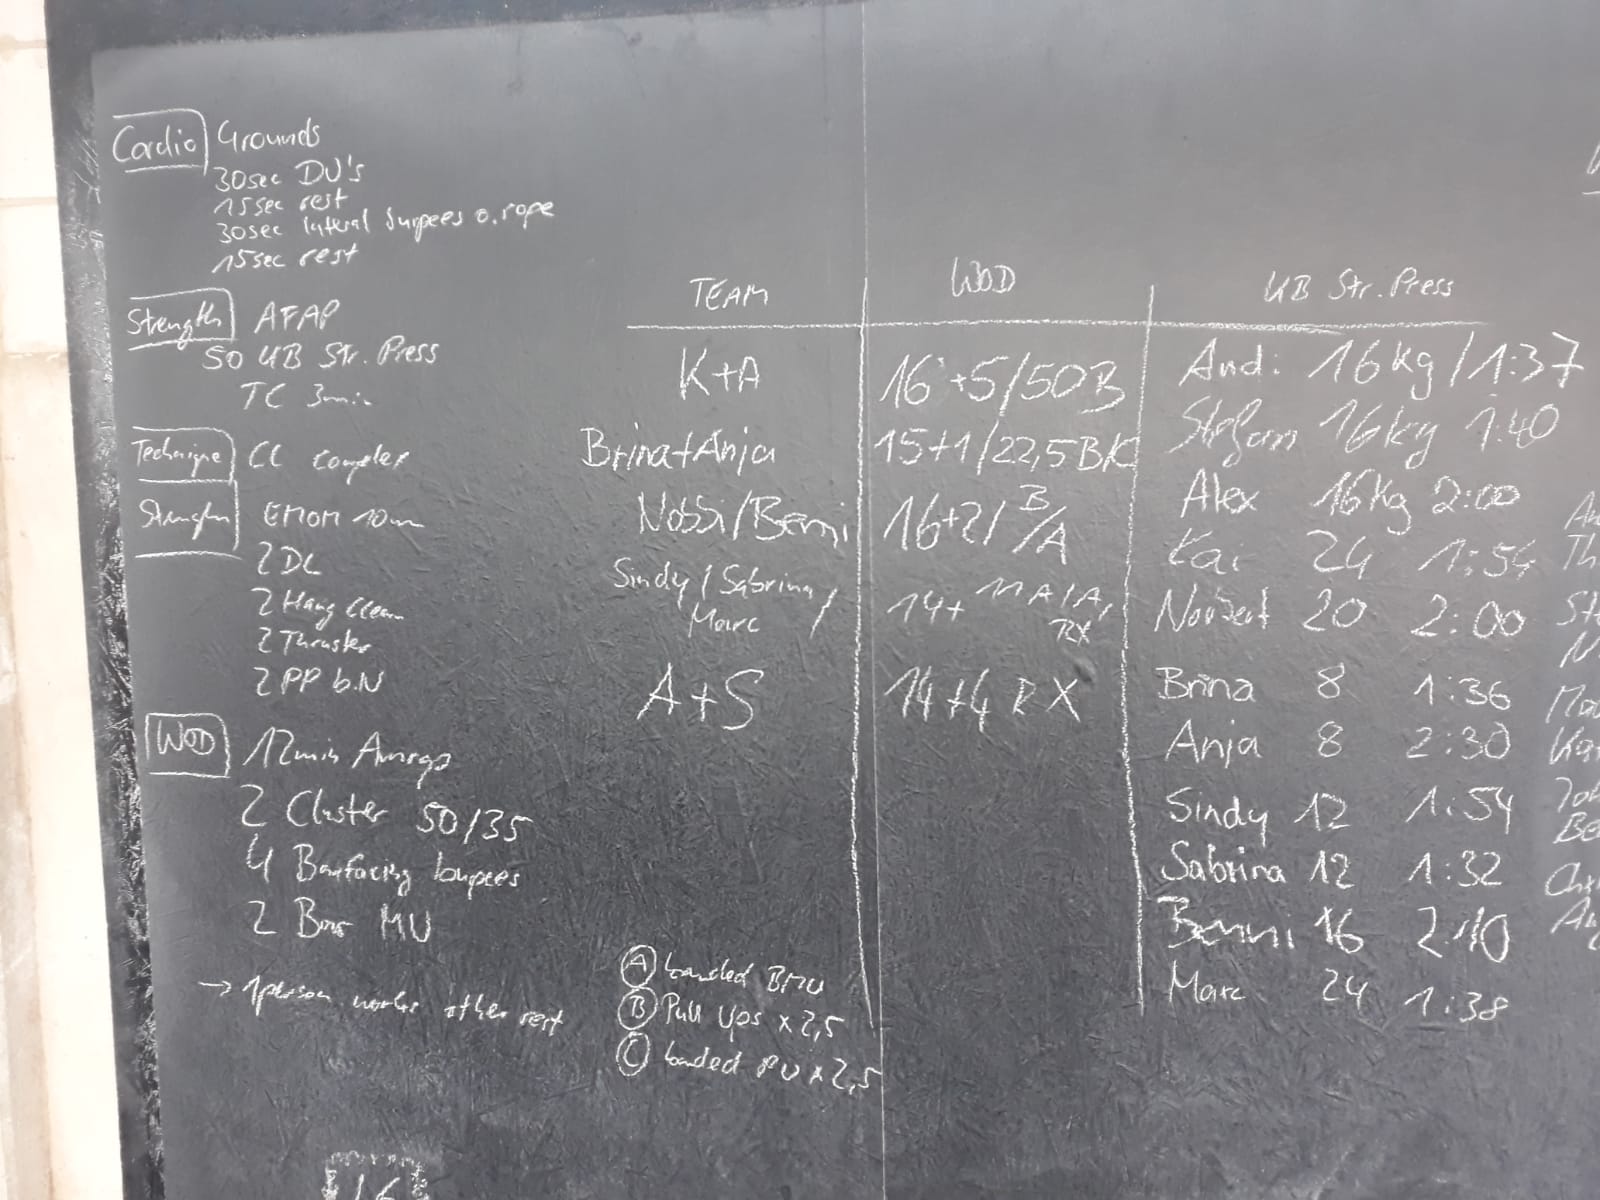 Cardio 4rounds
30sec DU's
15sec rest
30sec lateral burpees o. rope
15sec rest
Strength AFAP
50 KB Str. Press
TC 3min
Technique CC complex
Strength EMOM 10min
2 DL
2 Hang Clean
2 Thruster
2 PP b.N
WOD 12min Amrap
2 Cluster 50/35
4 Barfacing burpees
2 Bar MU
→ 1person works other rest
TEAM WOD
K+A 16+5/50B
Brina+Anja 15+1/22,5
Nobbi/Benni 16+2/ B/A
Sindy/Sabrina/
Marc 14+ 11 A/A,
RX
A+S 14+4 RX
Ⓐ banded BMU
Ⓑ Pull ups x 2,5
Ⓒ banded PU x 2,5
KB Str. Press
Andi 16kg/1:37
Stefan 16kg 1:40
Alex 16kg 2:00
Kai 24 1:54
Norbert 20 2:00
Brina 8 1:36
Anja 8 2:30
Sindy 12 1:54
Sabrina 12 1:32
Benni 16 2:10
Marc 24 1:38